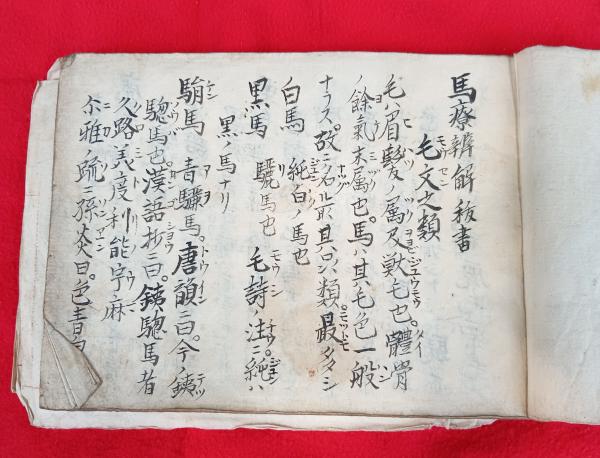 馬療辨解秘書
毛文之類
毛ハ眉髪ノ属及獣毛也。體骨
ノ餘氣末属也。馬ハ其ハ毛色一般
ナラス。故ニ名ル所其品類。最多シ
白馬 純白ノ馬也
黒馬 驪馬也 毛詩ノ注ニ純ハ
黒ノ馬ナリ
騧馬 青驪馬。唐韻ニ曰。今ノ鉄
騘馬也。漢語抄ニ曰。鉄騘馬者
久路美度利能宇麻
尓雅疏ニ孫炎曰。色青白